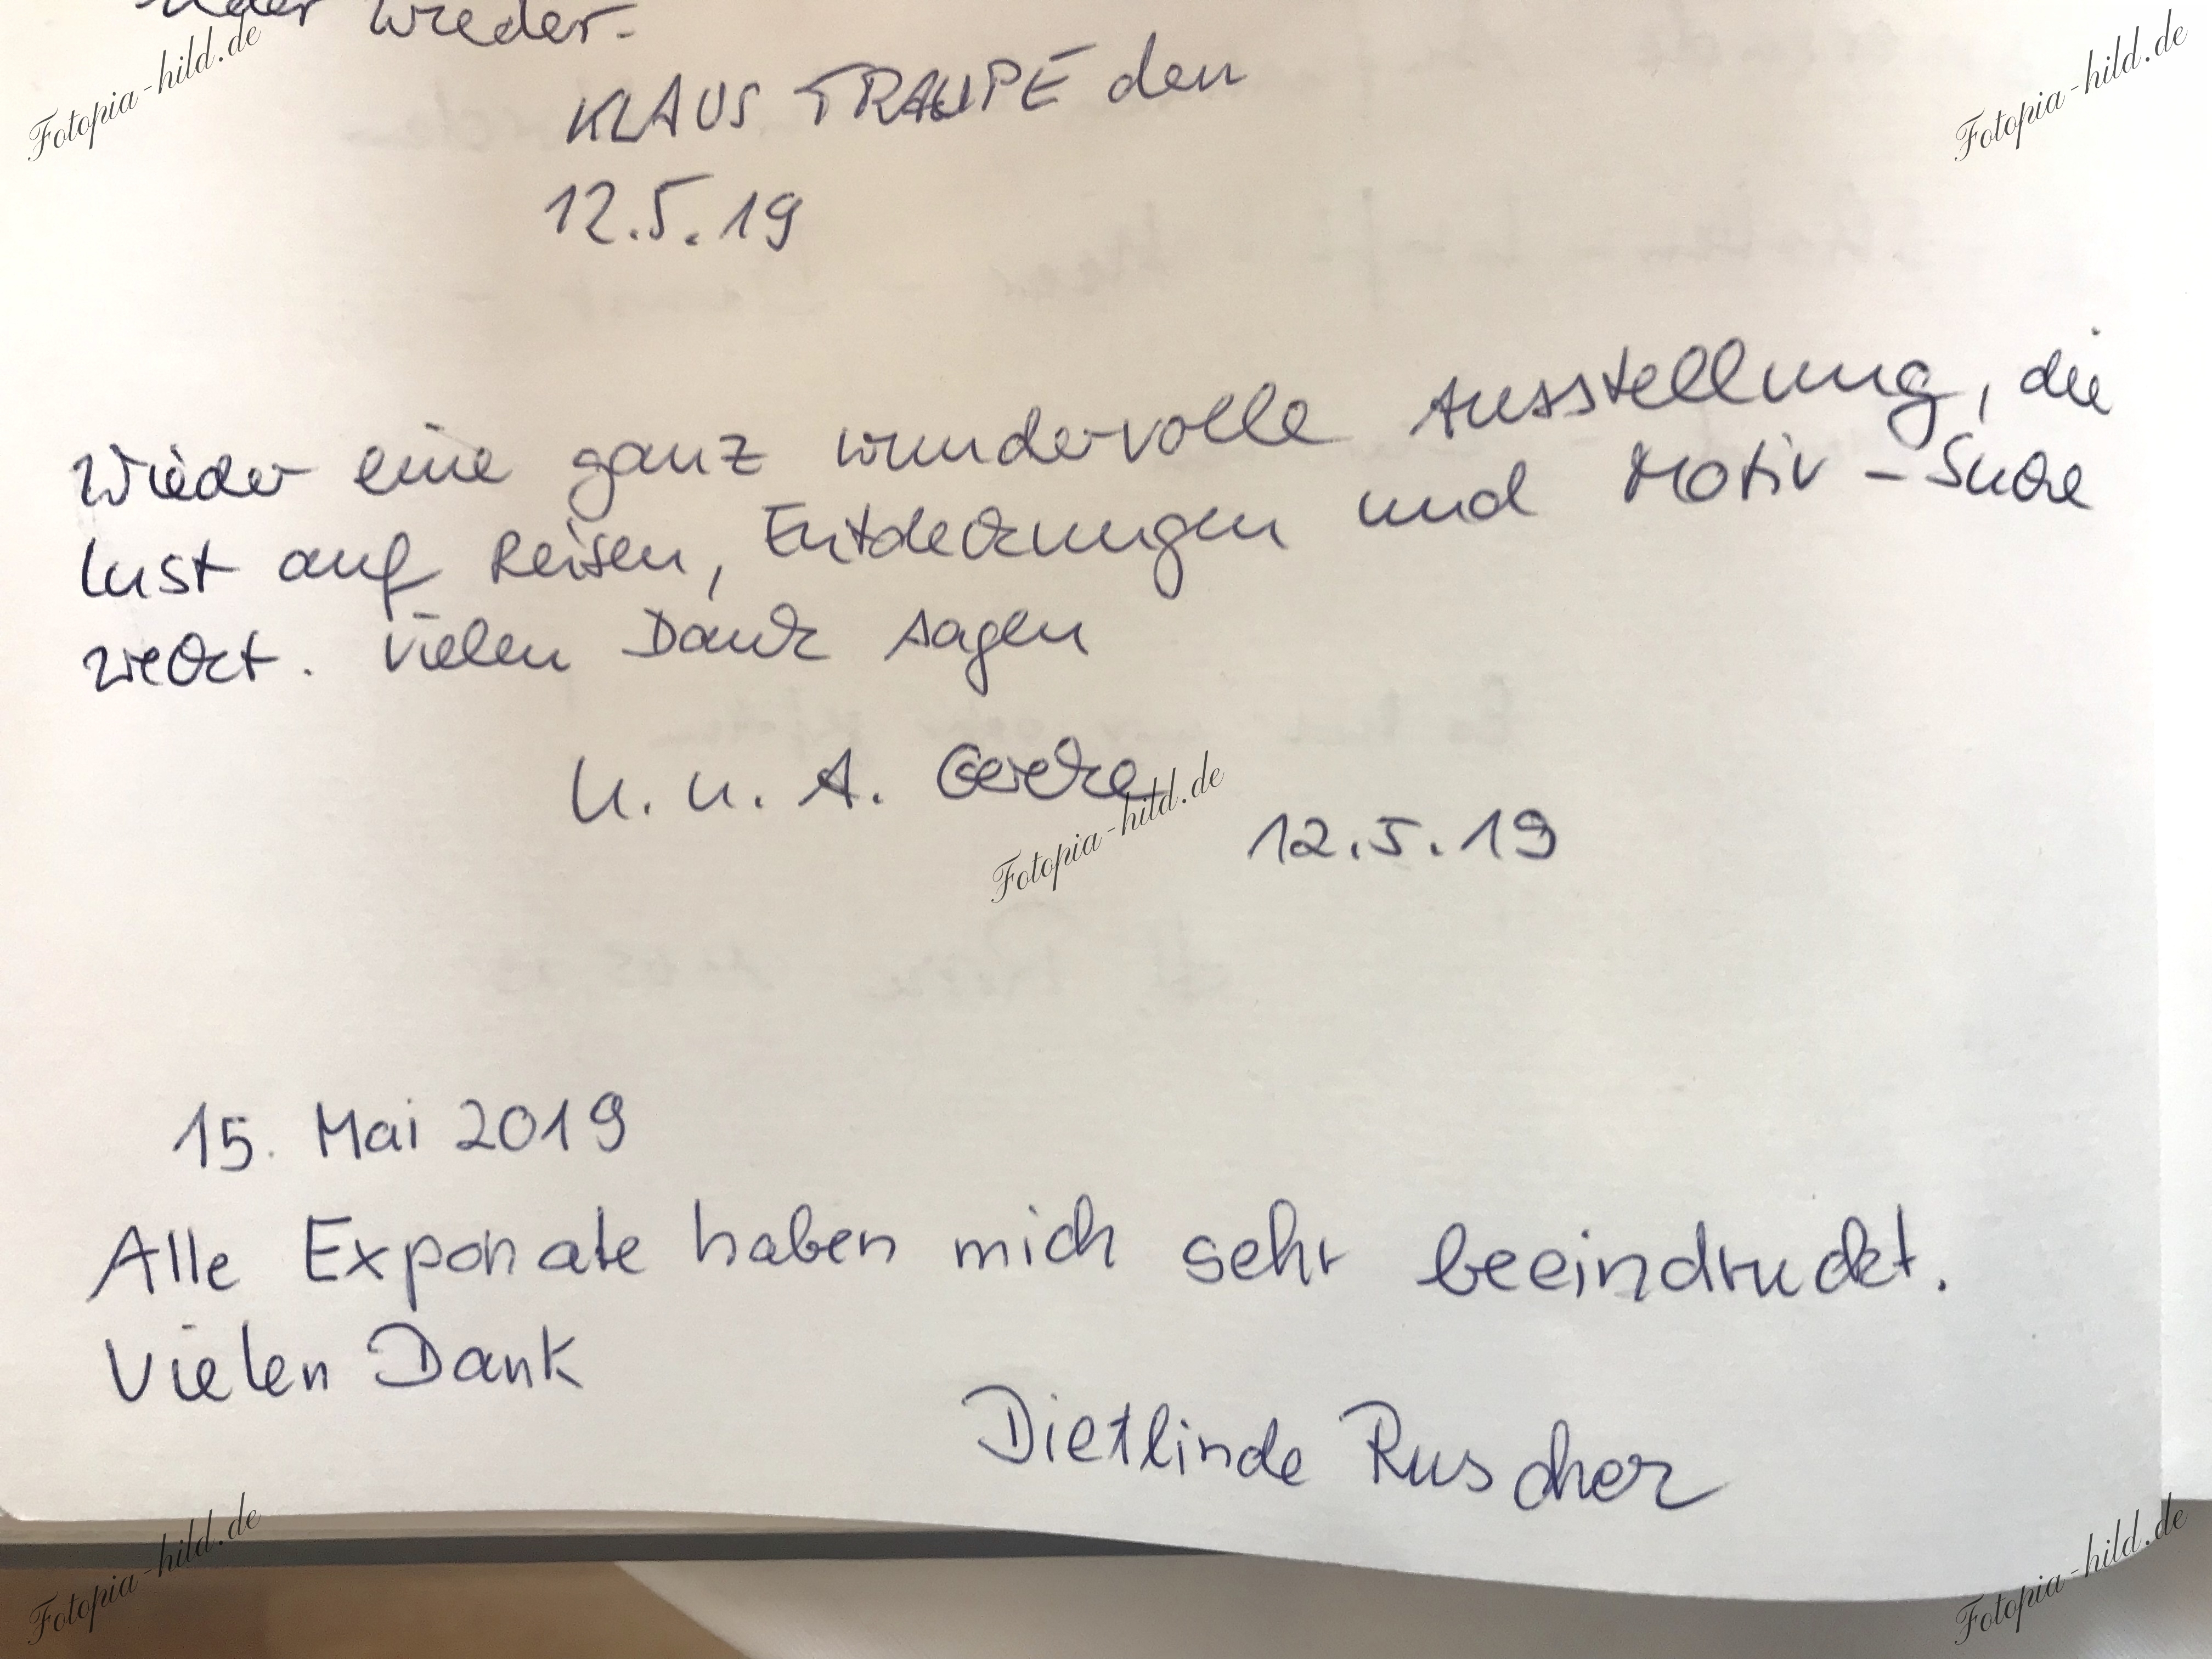 wieder.
KLAUS TRAUPE den
12.5.19
Wieder eine ganz wundervolle Ausstellung, die
Lust auf Reisen, Entdeckungen und Motiv-Suche
weckt. Vielen Dank sagen
U. u. A. Gercke
12.5.19
15. Mai 2019
Alle Exponate haben mich sehr beeindruckt.
Vielen Dank
Dietlinde Ruscher
Fotopia-hild.de
Fotopia-hild.de
Fotopia-hild.de
Fotopia-hild.de
Fotopia-hild.de